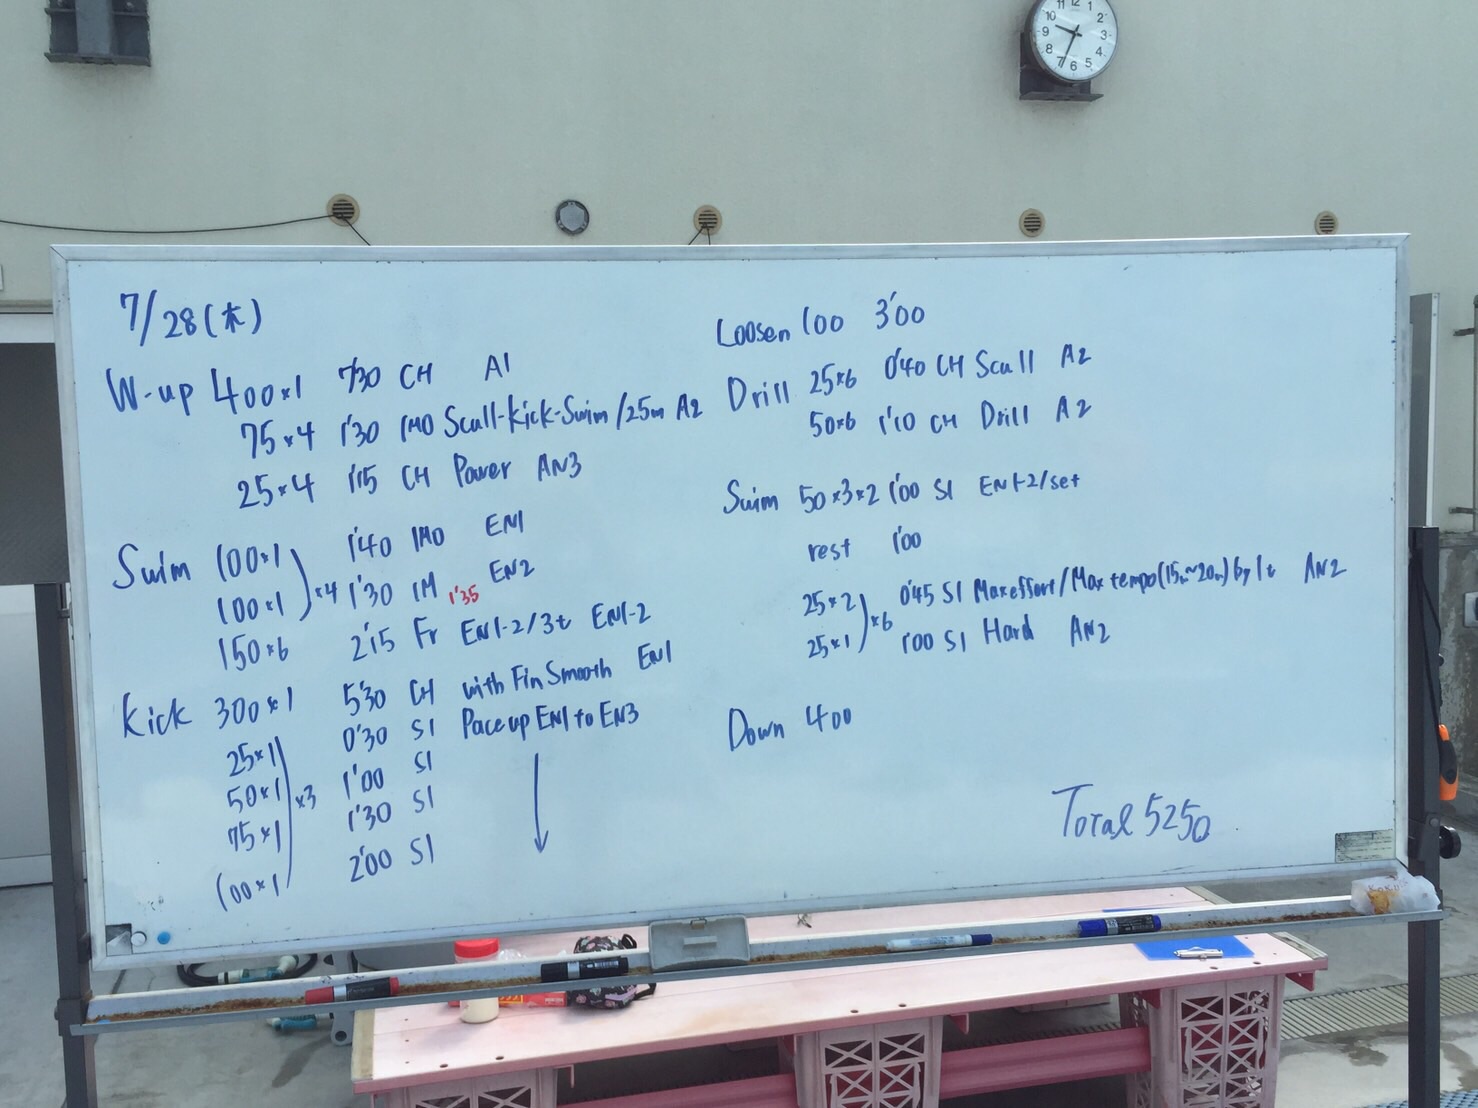 7/28(木)
W-up 400×1 7'30 CH A1
75×4 1'30 IMO Scull-Kick-Swim/25m A2
25×4 1'15 CH Power AN3
Swim 100×1 1'40 IMO EN1
100×1 ×4 1'30 IM 1'35 EN2
150×6 2'15 Fr EN1-2/3t EN1-2
Kick 300×1 5'30 CH with Fin Smooth EN1
25×1 0'30 S1 Pace up EN1 to EN3
50×1 ×3 1'00 S1
75×1 1'30 S1
100×1 2'00 S1
Loosen 100 3'00
Drill 25×6 0'40 CH Scull A2
50×6 1'10 CH Drill A2
Swim 50×3×2 1'00 S1 EN1-2/set
rest 1'00
25×2 ×6 0'45 S1 Max effort/Max tempo(15m~20m) by 1t AN2
25×1 1'00 S1 Hard AN2
Down 400
Total 5250
11 12 1 2 3 4 5 6 7 8 9 10